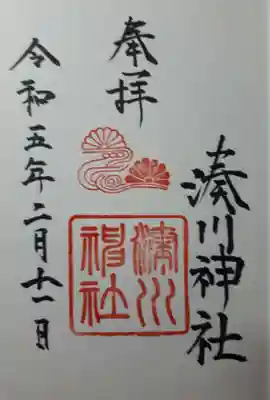 奉拝
湊川神社
湊川
神社
令和五年二月十一日